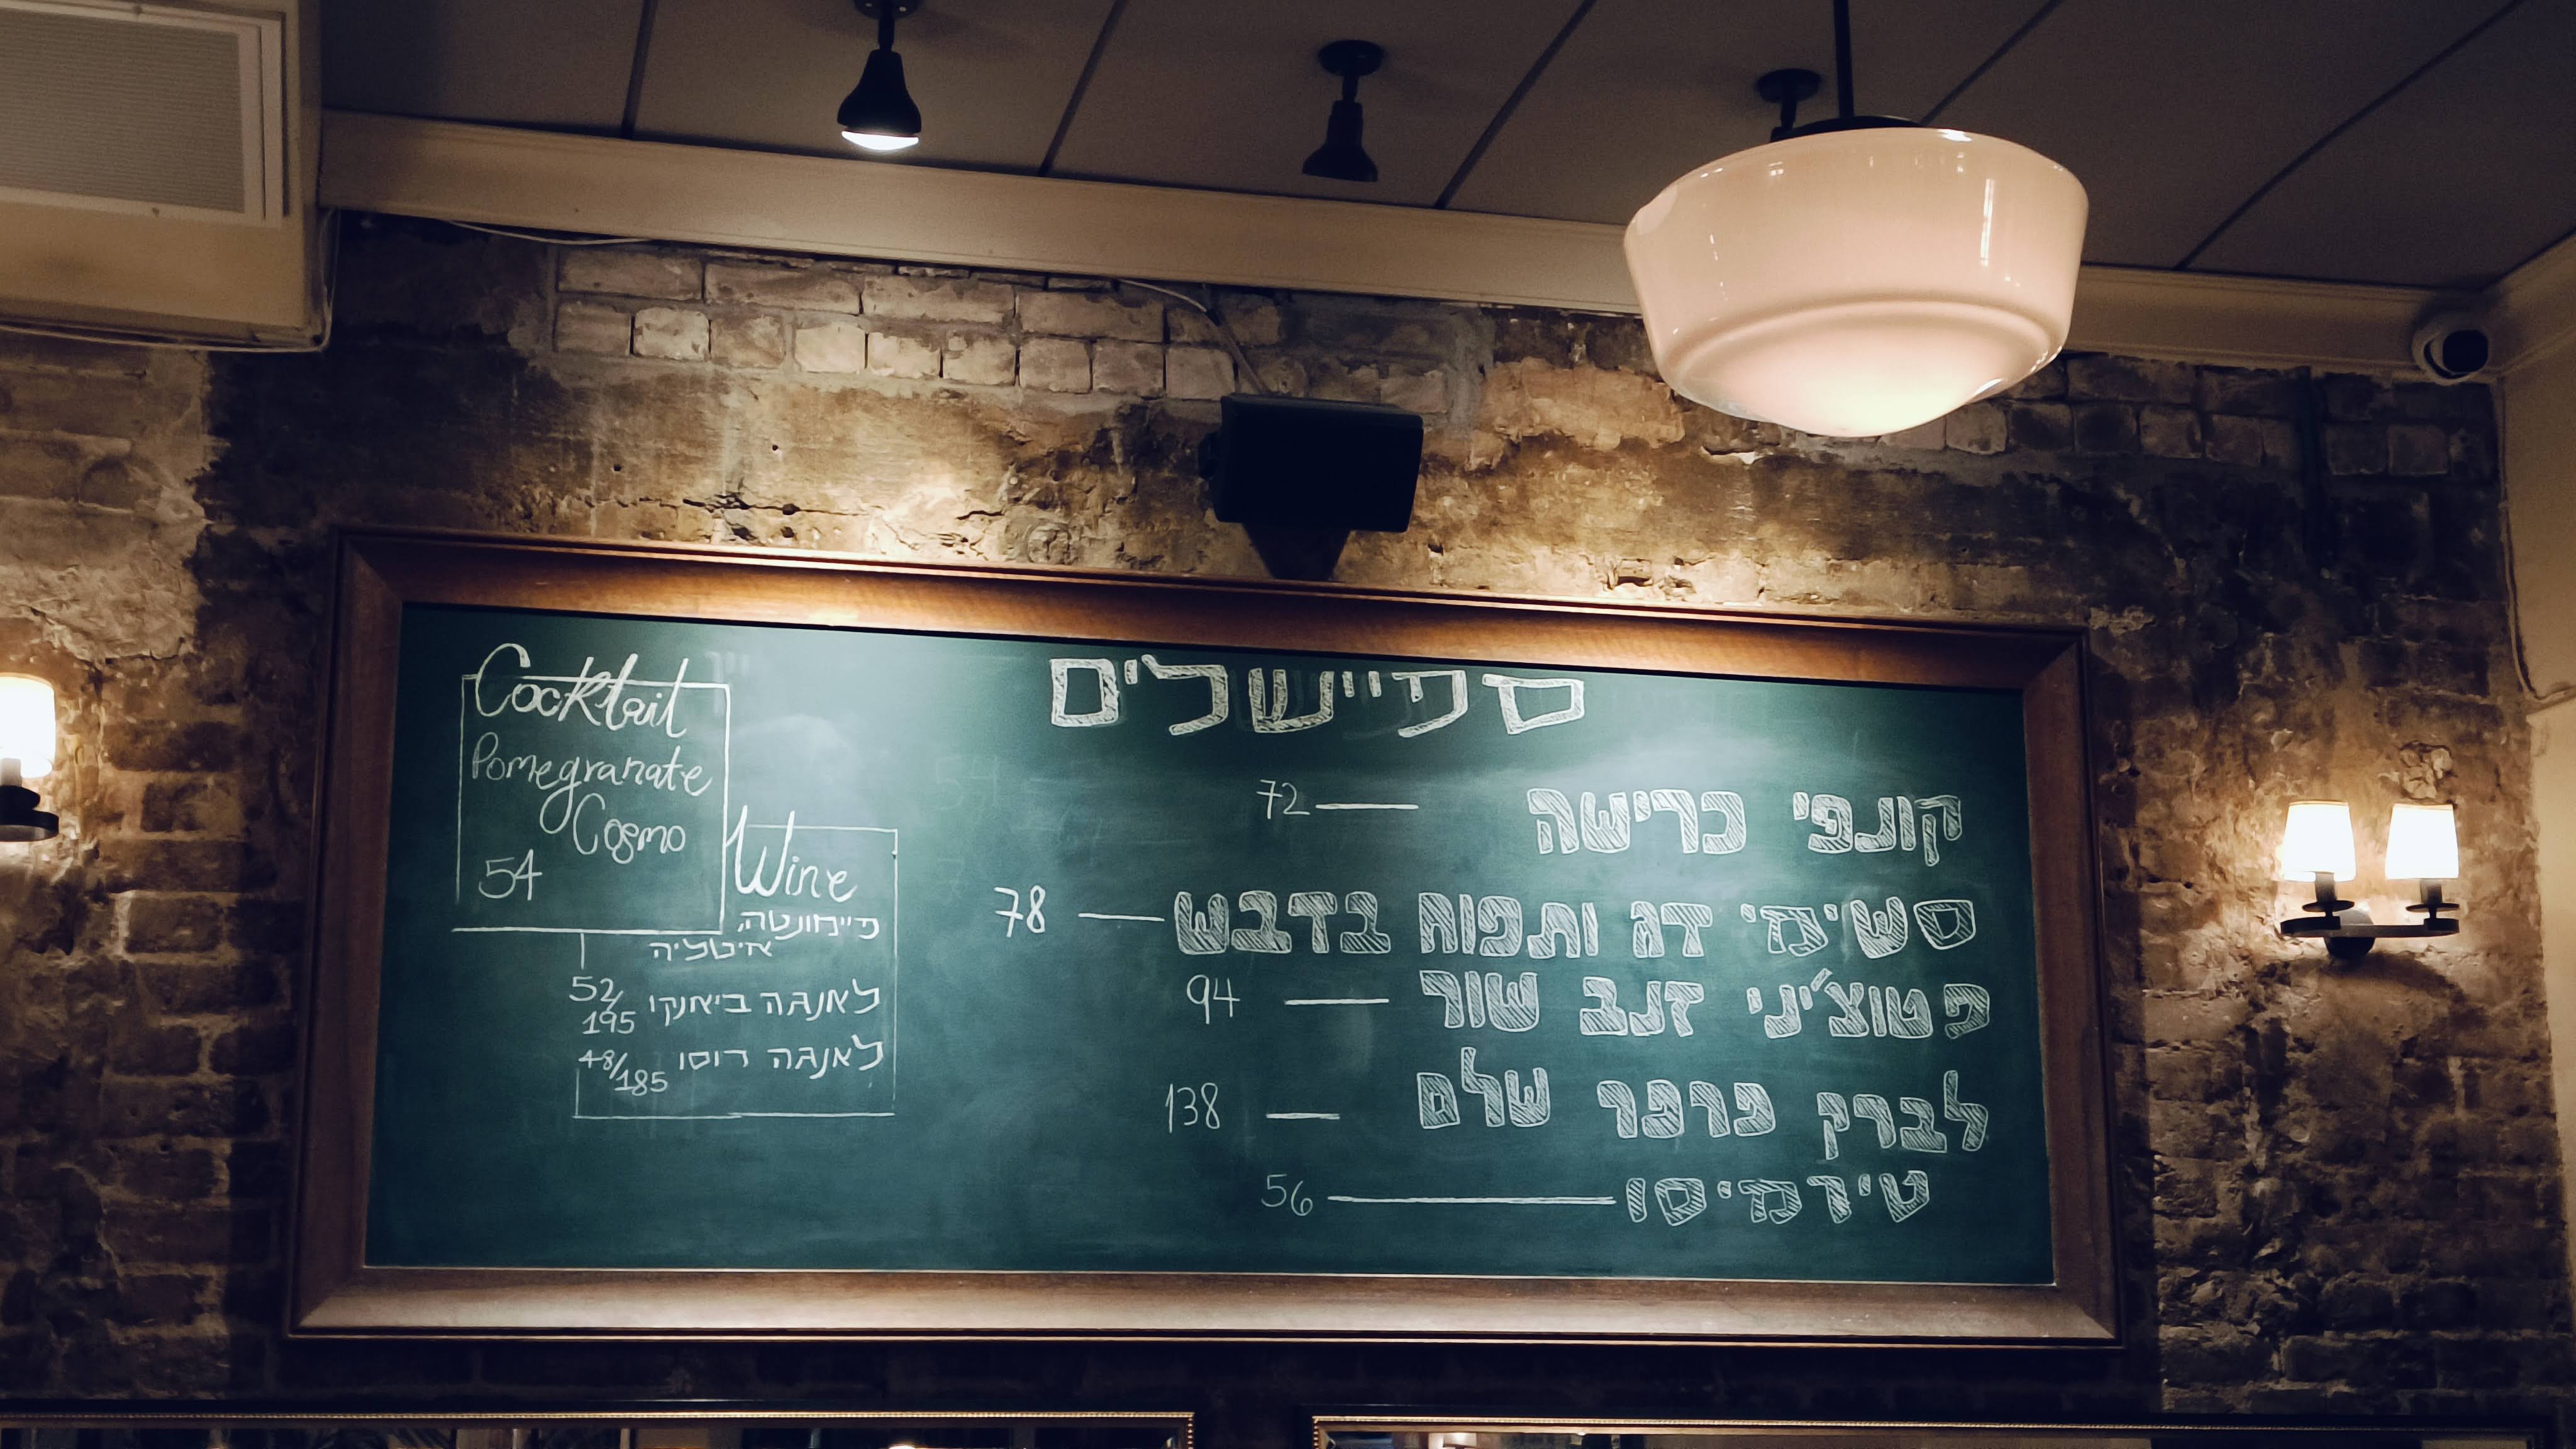 ספיישלים
קונפי כרישה — 72
סשימי דג ותפוח בדבש — 78
פטוצ'יני זנב שור — 94
לברק פרפר שלם — 138
טירמיסו — 56
Cocktail
Pomegranate
Cosmo
54
Wine
פיימונטה,
איטליה
לאנגה ביאנקו 52/195
לאנגה רוסו 48/185